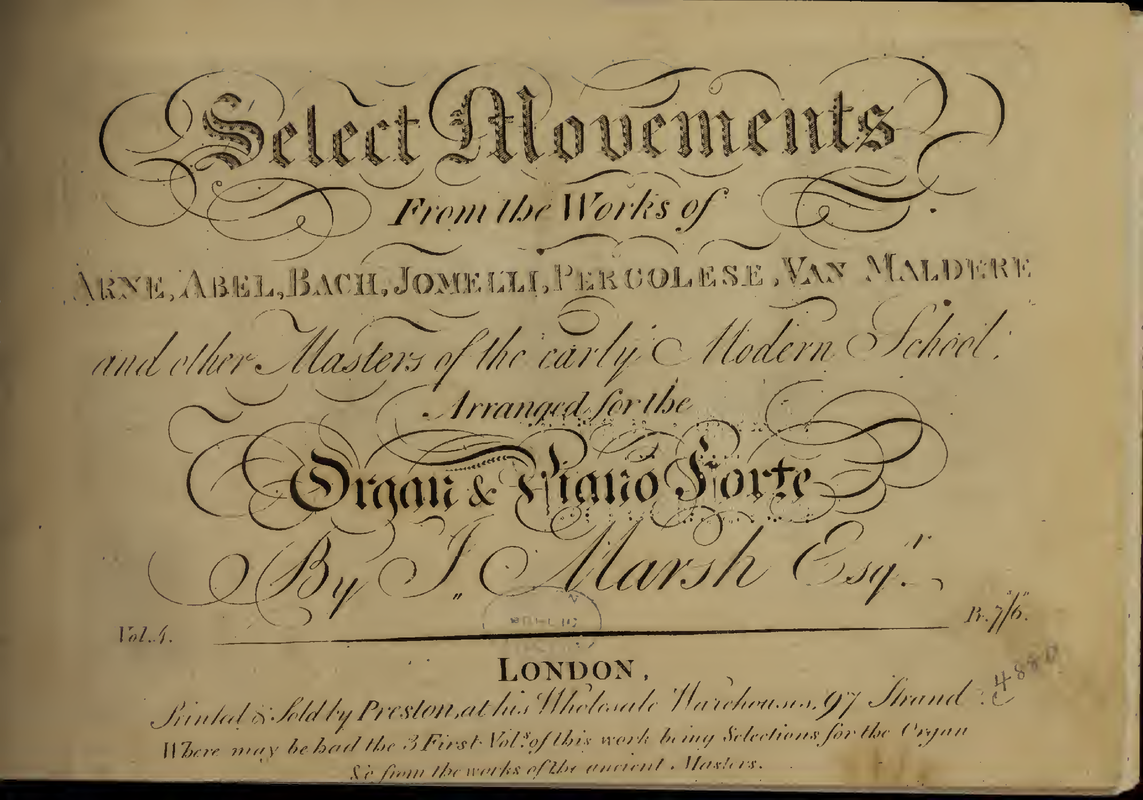 Select Movements
From the Works of
ARNE, ABEL, BACH, JOMELLI, PERGOLESE, VAN MALDERE
and other Masters of the early Modern School.
Arranged for the
Organ & Piano Forte
By J. Marsh Esqr.
Vol. 4.
Pr. 7/6.
LONDON,
Printed & Sold by Preston, at his Wholesale Warehouses, 97 Strand.
Where may be had the 3 First Vols. of this work being Selections for the Organ
&c from the works of the ancient Masters.
4880